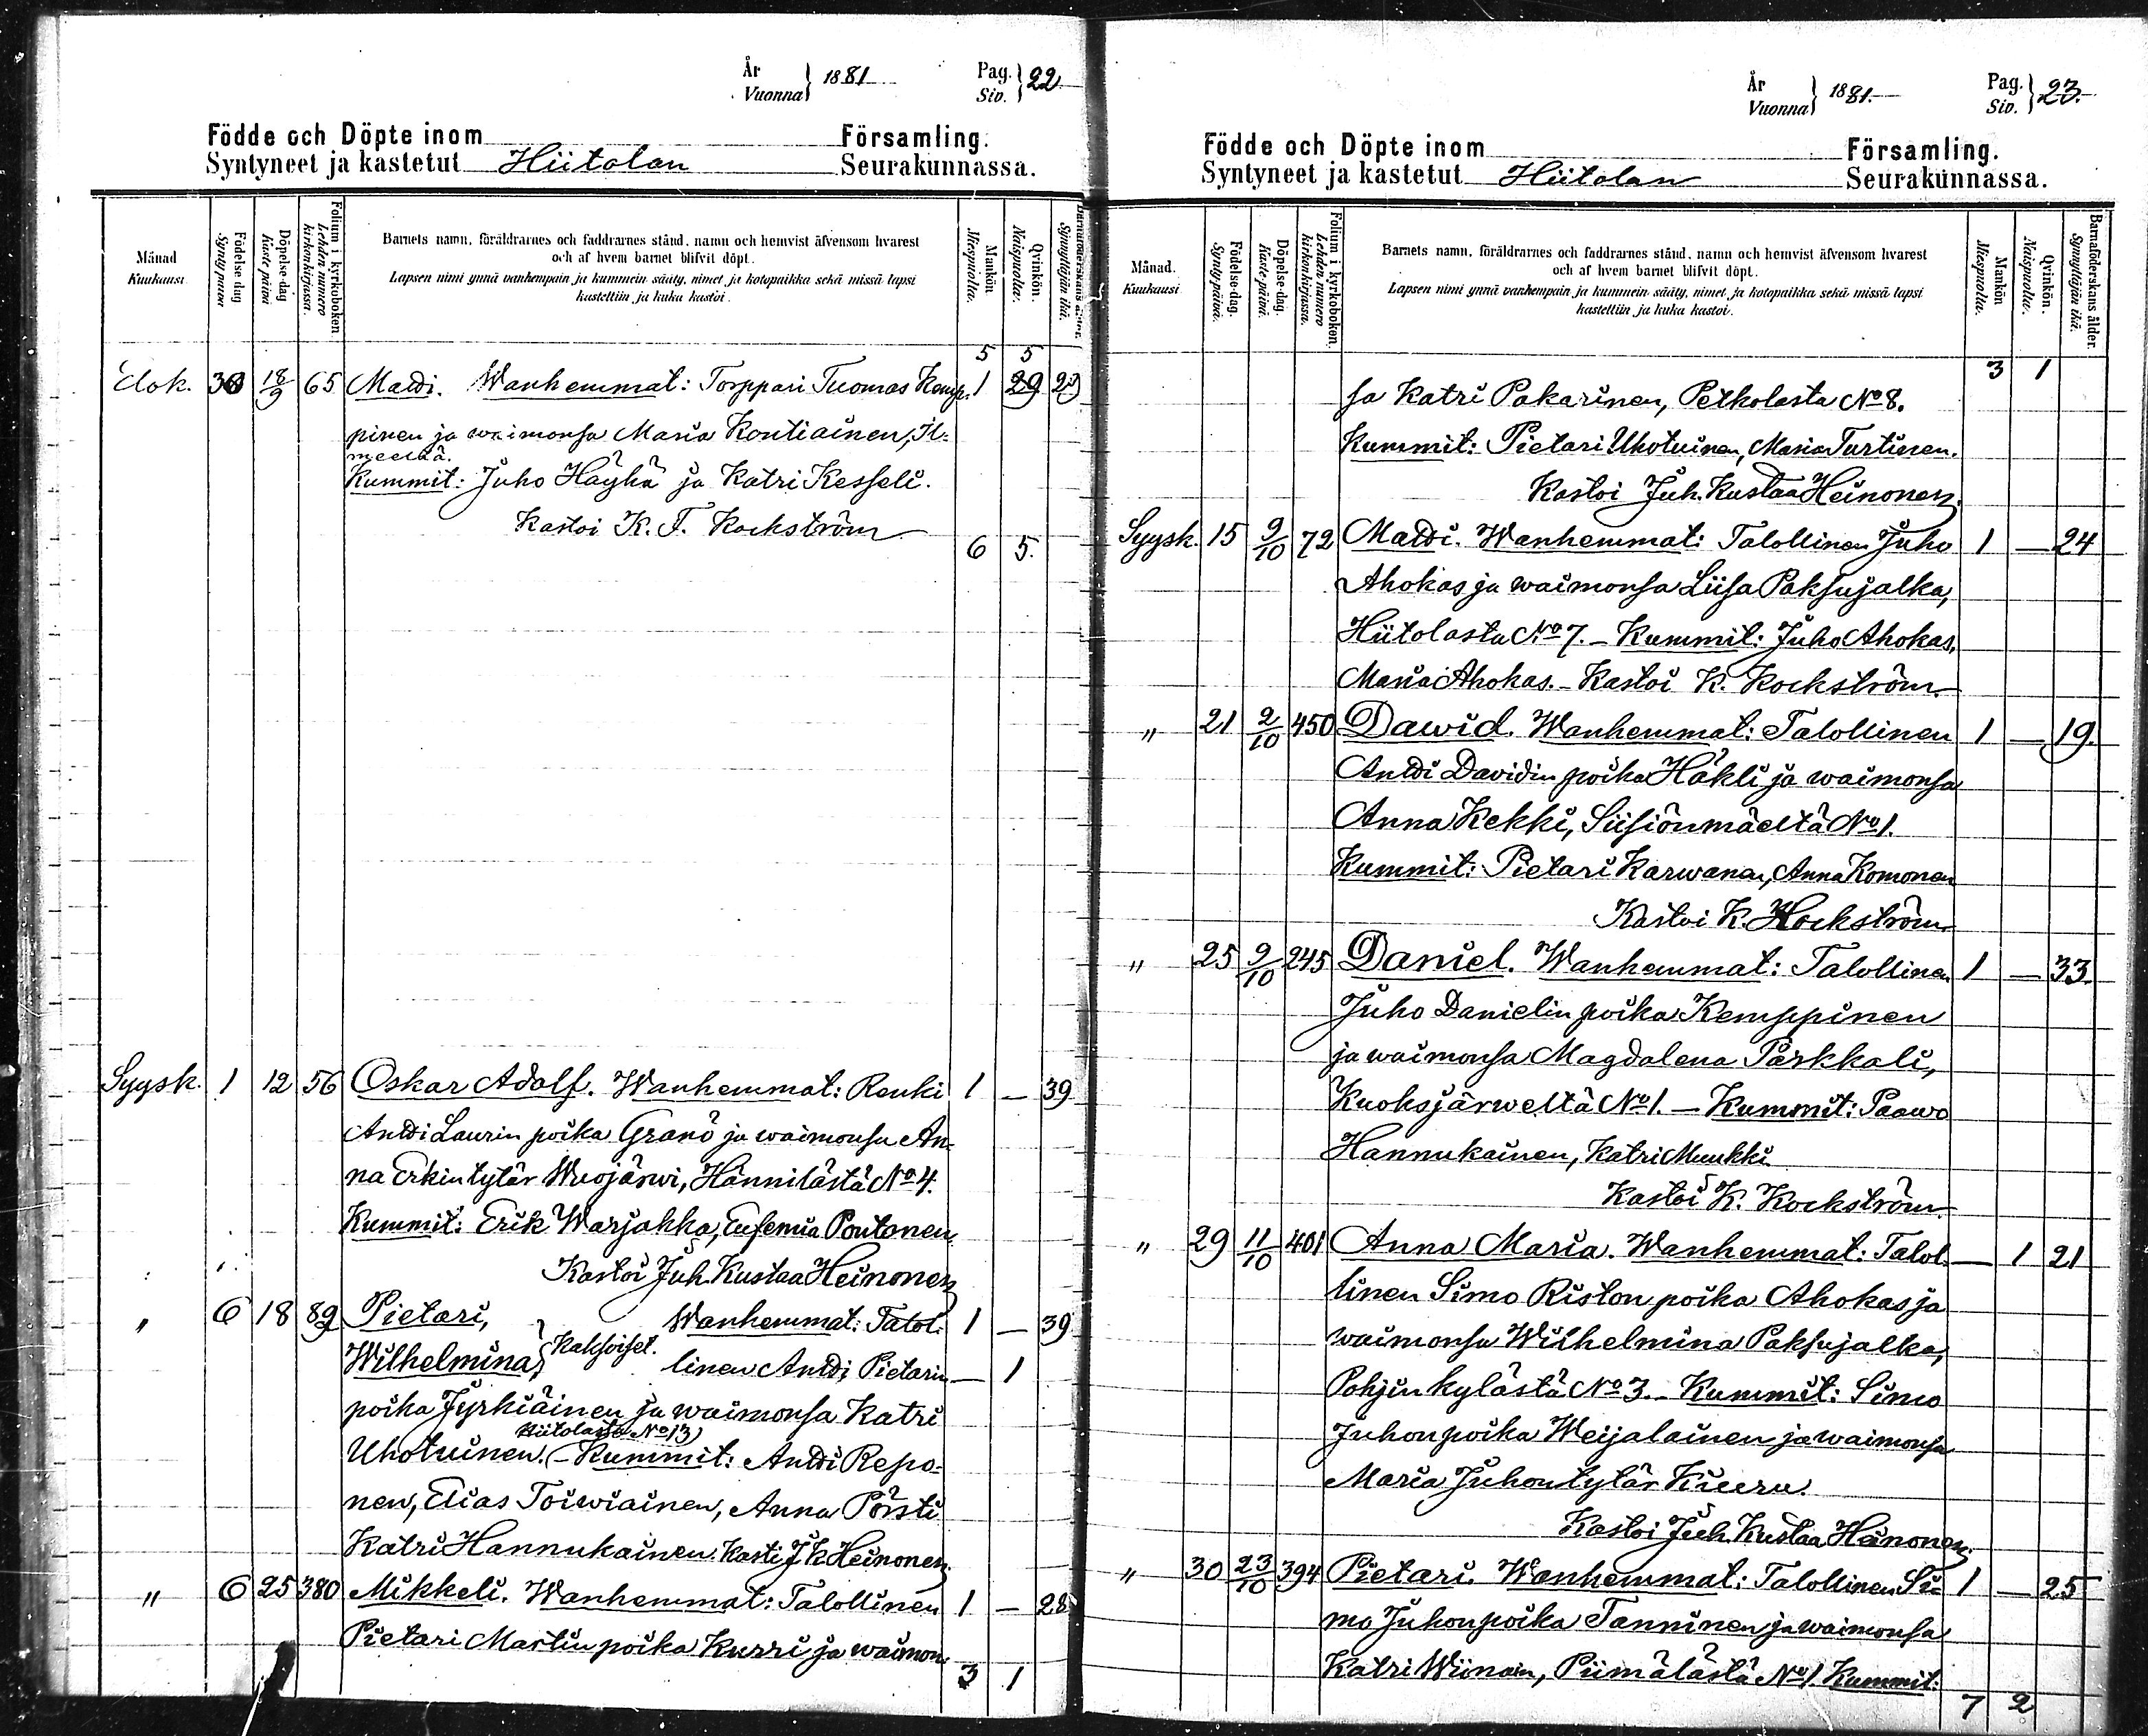 År
Vuonna } 1881
Pag.
Siv. } 22
Födde och Döpte inom Församling.
Syntyneet ja kastetut Hiitolan Seurakunnassa.
Månad
Kuukausi
Födelse-dag
Syntypäivä
Döpelse-dag
Kaste-päivä
Folium i kyrkoboken
Lehden numero kirkonkirjassa.
Barnets namn, föräldrarnes och faddrarnes stånd, namn och hemvist äfvensom hvarest
och af hvem barnet blifvit döpt.
Lapsen nimi ynnä vanhempain ja kummein sääty, nimet ja kotopaikka sekä missä lapsi
kastettiin ja kuka kastoi.
Mankön
Miespuolia.
Qvinkön.
Naispuolia.
Barnaföderskans ålder.
Synnyttäjän ikä.
5 5
Elok. 30 18/9 65 Matti. Wanhemmat: Torppari Tuomas Kemp- 1 29
pinen ja waimonsa Maria Kontiainen, Il-
meeltä.
Kummit: Juho Häyhä ja Katri Kesseli.
Kastoi K. F. Kockström
6 5.
Syysk. 1 12 56 Oskar Adolf. Wanhemmat: Renki 1 — 39
Antti Laurin poika Granö ja waimonsa An-
na Erkin tytär Wuojärwi, Hännilästä No 4.
Kummit: Erik Warjakka, Eufemia Pontonen
Kastoi Juh. Kustaa Heinonen
„ 6 18 89 Pietari, Wanhemmat: Talol- 1 — 39
Wilhelmina, } Kaksoiset. linen Antti Pietarin — 1
poika Jyrkiäinen ja waimonsa Katri
Hiitolasta No 13
Uhotuinen. – Kummit: Antti Repo-
nen, Elias Toiwiainen, Anna Pörsti
Katri Hannukainen. Kasti J K Heinonen.
„ 6 25 380 Mikkeli. Wanhemmat: Talollinen 1 — 28
Pietari Martin poika Kurri ja waimon-
3 1
År
Vuonna } 1881.
Pag.
Siv. } 23.
Födde och Döpte inom Församling.
Syntyneet ja kastetut Hiitolan Seurakunnassa.
Månad.
Kuukausi
Födelse-dag.
Syntypäivä.
Döpelse-dag.
Kaste-päivä.
Folium i kyrkoboken.
Lehden numero kirkonkirjassa.
Barnets namn, föräldrarnes och faddrarnes stånd, namn och hemvist äfvensom hvarest
och af hvem barnet blifvit döpt.
Lapsen nimi ynnä vanhempain ja kummein sääty, nimet ja kotopaikka sekä missä lapsi
kastettiin ja kuka kastoi.
Mankön
Miespuolia.
Qvinkön.
Naispuolia.
Barnaföderskans ålder.
Synnyttäjän ikä.
3 1
sa Katri Pakarinen, Petkolasta No 8.
Kummit: Pietari Uhotuinen, Maria Turtinen.
Kastoi Juh. Kustaa Heinonen.
Syysk. 15 9/10 72 Matti. Wanhemmat: Talollinen Juho 1 — 24
Ahokas ja waimonsa Liisa Paksujalka,
Hiitolasta No 7. – Kummit: Juho Ahokas,
Maria Ahokas. – Kastoi K. Kockström.
„ 21 2/10 450 Dawid. Wanhemmat: Talollinen 1 — 19.
Antti Davidin poika Häkli ja waimonsa
Anna Kekki, Siisiönmäeltä No 1.
Kummit: Pietari Karwanen, Anna Komonen
Kastoi K. Kockström
„ 25 9/10 245 Daniel. Wanhemmat: Talollinen 1 — 33.
Juho Danielin poika Kemppinen
ja waimonsa Magdalena Pärkkäli,
Kuoksjärweltä No 1. – Kummit: Paawo
Hannukainen, Katri Muukki.
Kastoi K. Kockström.
„ 29 11/10 401 Anna Maria. Wanhemmat: Talol- — 1 21
linen Simo Riston poika Ahokas ja
waimonsa Wilhelmina Paksujalka,
Pohjin kylästä No 3. – Kummit: Simo
Juhon poika Weijalainen ja waimonsa
Maria Juhontytär Kiuru.
Kastoi Juh. Kustaa Heinonen.
„ 30 23/10 394 Pietari. Wanhemmat: Talollinen Si- 1 — 25
mo Juhonpoika Tanninen ja waimonsa
Katri Wiinain, Piimälästä No 1. Kummit:
7 2